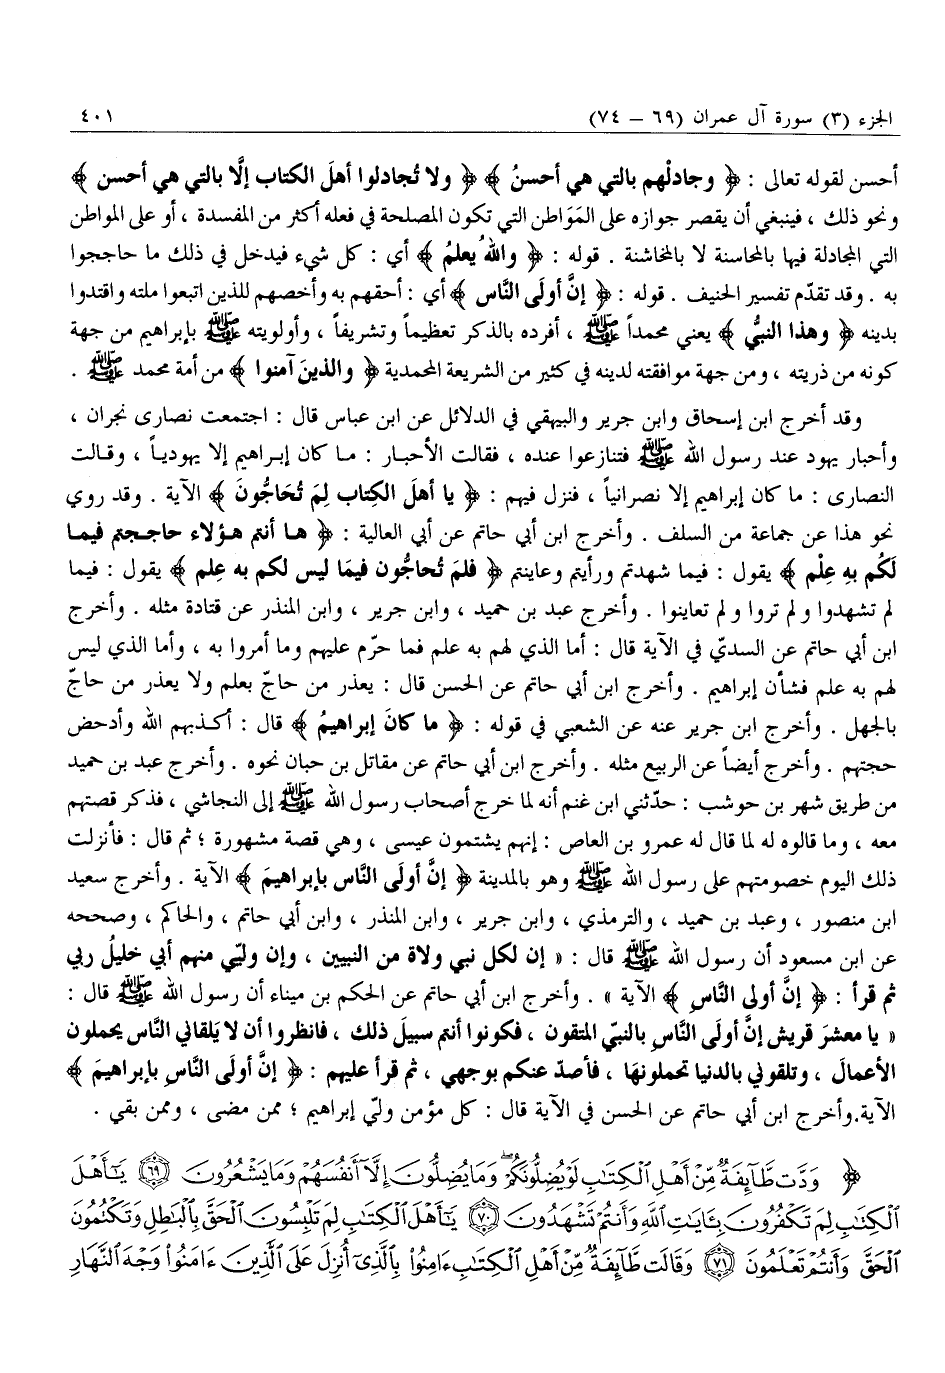 الجزء (٣) سورة آل عمران (٦٩ – ٧٤) ٤٠١
أحسن لقوله تعالى : ﴿ وجادلْهم بالتي هي أحسنُ ﴾ ﴿ ولا تُجادلوا أهلَ الكتاب إلَّا بالتي هي أحسن ﴾
ونحو ذلك ، فينبغي أن يقصر جوازه على المَوَاطن التي تكون المصلحة في فعله أكثر من المفسدة ، أو على المواطن
التي المجادلة فيها بالمحاسنة لا بالمخاشنة . قوله : ﴿ واللهُ يعلمُ ﴾ أي : كل شيء فيدخل في ذلك ما حاججوا
به . وقد تقدّم تفسير الحنيف . قوله : ﴿ إنَّ أولَى النَّاس ﴾ أي : أحقهم به وأخصهم للذين اتبعوا ملته واقتدوا
بدينه ﴿ وهذا النبيُّ ﴾ يعني محمداً ﷺ ، أفرده بالذكر تعظيماً وتشريفاً ، وأولويته ﷺ بإبراهيم من جهة
كونه من ذريته ، ومن جهة موافقته لدينه في كثير من الشريعة المحمدية ﴿ والذينَ آمنوا ﴾ من أمة محمد ﷺ .
وقد أخرج ابن إسحاق وابن جرير والبيهقي في الدلائل عن ابن عباس قال : اجتمعت نصارى نجران ،
وأحبار يهود عند رسول الله ﷺ فتنازعوا عنده ، فقالت الأحبار : ما كان إبراهيم إلا يهودياً ، وقالت
النصارى : ما كان إبراهيم إلا نصرانياً ، فنزل فيهم : ﴿ يا أهلَ الكتاب لِمَ تُحَاجُّونَ ﴾ الآية . وقد روي
نحو هذا عن جماعة من السلف . وأخرج ابن أبي حاتم عن أبي العالية : ﴿ ها أنتم هؤلاء حاججتم فيما
لَكُم بِهِ عِلْم ﴾ يقول : فيما شهدتم ورأيتم وعاينتم ﴿ فلمَ تُحاجُّون فيمَا ليس لكم به عِلم ﴾ يقول : فيما
لم تشهدوا ولم تروا ولم تعاينوا . وأخرج عبد بن حميد ، وابن جرير ، وابن المنذر عن قتادة مثله . وأخرج
ابن أبي حاتم عن السديّ في الآية قال : أما الذي لهم به علم فما حرّم عليهم وما أمروا به ، وأما الذي ليس
لهم به علم فشأن إبراهيم . وأخرج ابن أبي حاتم عن الحسن قال : يعذر من حاجّ بعلم ولا يعذر من حاجّ
بالجهل . وأخرج ابن جرير عنه عن الشعبي في قوله : ﴿ ما كانَ إبراهيمُ ﴾ قال : أكذبهم الله وأدحض
حجتهم . وأخرج أيضاً عن الربيع مثله . وأخرج ابن أبي حاتم عن مقاتل بن حبان نحوه . وأخرج عبد بن حميد
من طريق شهر بن حوشب : حدّثني ابن غنم أنه لما خرج أصحاب رسول الله ﷺ إلى النجاشي ، فذكر قصتهم
معه ، وما قالوه له لما قال له عمرو بن العاص : إنهم يشتمون عيسى ، وهي قصة مشهورة ؛ ثم قال : فأنزلت
ذلك اليوم خصومتهم على رسول الله ﷺ وهو بالمدينة ﴿ إنَّ أولَى النَّاس بإبراهيمَ ﴾ الآية . وأخرج سعيد
ابن منصور ، وعبد بن حميد ، والترمذي ، وابن جرير ، وابن المنذر ، وابن أبي حاتم ، والحاكم ، وصححه
عن ابن مسعود أن رسول الله ﷺ قال : « إن لكل نبي ولاة من النبيين ، وإن وليّي منهم أبي خليلُ ربي
ثم قرأ : ﴿ إنَّ أولى النَّاسِ ﴾ الآية » . وأخرج ابن أبي حاتم عن الحكم بن ميناء أن رسول الله ﷺ قال :
« يا معشرَ قريش إنَّ أولَى النَّاسِ بالنبيّ المتقون ، فكونوا أنتم سبيلَ ذلك ، فانظروا أن لا يَلقاني النَّاس يحملون
الأعمالَ ، وتلقوني بالدنيا تحملونهَا ، فأصدّ عنكم بوجهي ، ثم قرأ عليهم : ﴿ إنَّ أولَى النَّاسِ بإبراهيمَ ﴾
الآية.وأخرج ابن أبي حاتم عن الحسن في الآية قال : كل مؤمن وليّ إبراهيم ؛ ممن مضى ، وممن بقي .
﴿ وَدَّت طَّآئِفَةٌ مِّنْ أَهْلِ ٱلْكِتَٰبِ لَوْ يُضِلُّونَكُمْ وَمَا يُضِلُّونَ إِلَّآ أَنفُسَهُمْ وَمَا يَشْعُرُونَ ﴿٦٩﴾ يَٰٓأَهْلَ
ٱلْكِتَٰبِ لِمَ تَكْفُرُونَ بِـَٔايَٰتِ ٱللَّهِ وَأَنتُمْ تَشْهَدُونَ ﴿٧٠﴾ يَٰٓأَهْلَ ٱلْكِتَٰبِ لِمَ تَلْبِسُونَ ٱلْحَقَّ بِٱلْبَٰطِلِ وَتَكْتُمُونَ
ٱلْحَقَّ وَأَنتُمْ تَعْلَمُونَ ﴿٧١﴾ وَقَالَت طَّآئِفَةٌ مِّنْ أَهْلِ ٱلْكِتَٰبِ ءَامِنُوا۟ بِٱلَّذِىٓ أُنزِلَ عَلَى ٱلَّذِينَ ءَامَنُوا۟ وَجْهَ ٱلنَّهَارِ